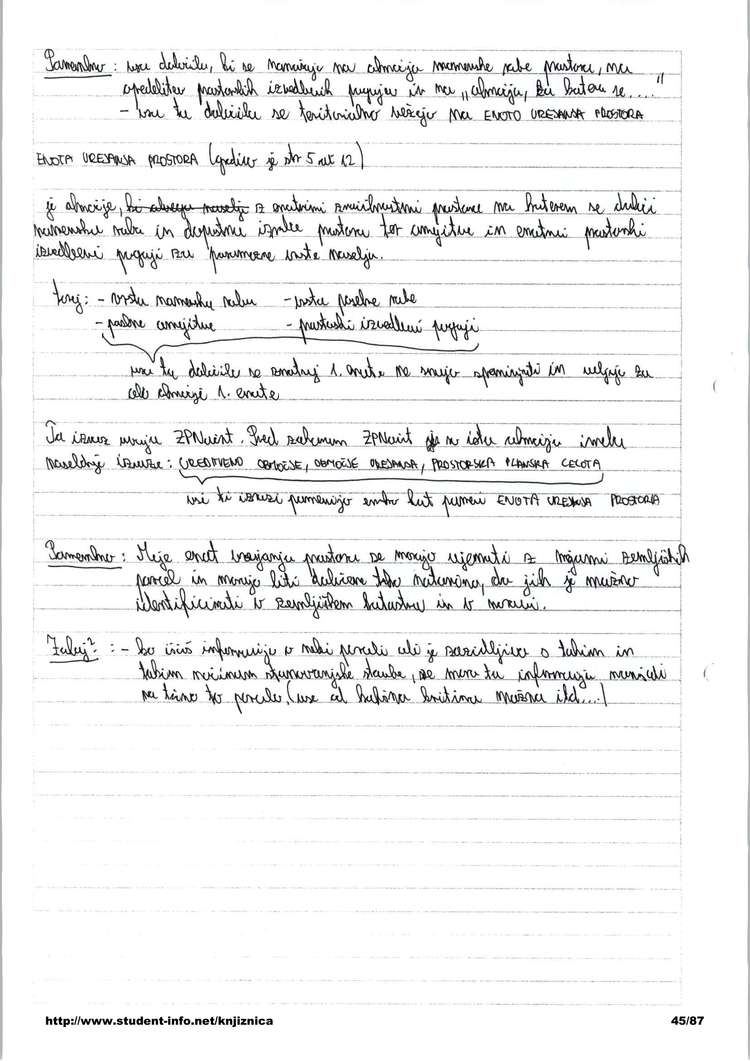 Pomembno : vsa določila, ki se nanašajo na območja namenske rabe prostora, na
opredelitev prostorskih izvedbenih pogojev in na „območja, za katera se....."
- vsa ta določila se teritorialno vežejo na ENOTO UREJANJA PROSTORA
ENOTA UREJANJA PROSTORA (gradivo je str 5 12)
je območje, ki obsega naselje z enotnimi značilnostmi prostora na katerem se določi
namenska raba in dopustna izraba prostora ter omejitve in enotni prostorski
izvedbeni pogoji za posamezne vrste naselja.
torej : - vrsta namenske rabe - vrsta posebne rabe
- posebne omejitve - prostorski izvedbeni pogoji
vsa ta določila se znotraj 1. enote ne smejo spreminjati in veljajo za
celo območje 1. enote
Ta izraz uvaja ZPNačrt. Pred zakonom ZPNačrt so ta območja imela
naslednje izraze : UREDITVENO OBMOČJE, OBMOČJE UREJANJA, PROSTORSKA PLANSKA CELOTA
vsi ti izrazi pomenijo enako kot pomeni ENOTA UREJANJA PROSTORA
Pomembno : Meje enot urejanja prostora se morajo ujemati z mejami zemljiških
parcel in morajo biti določene tako natančno, da jih je možno
identificirati v zemljiškem katastru in v naravi.
Zakaj? : - ko iščeš informacijo o neki parceli ali je zazidljiva s takim in
takim načinom stanovanjske stavbe, se mora ta informacija nanašati
na točno to parcelo, (vse od kakšna kritina možna itd....)
http://www.student-info.net/knjiznica
45/87